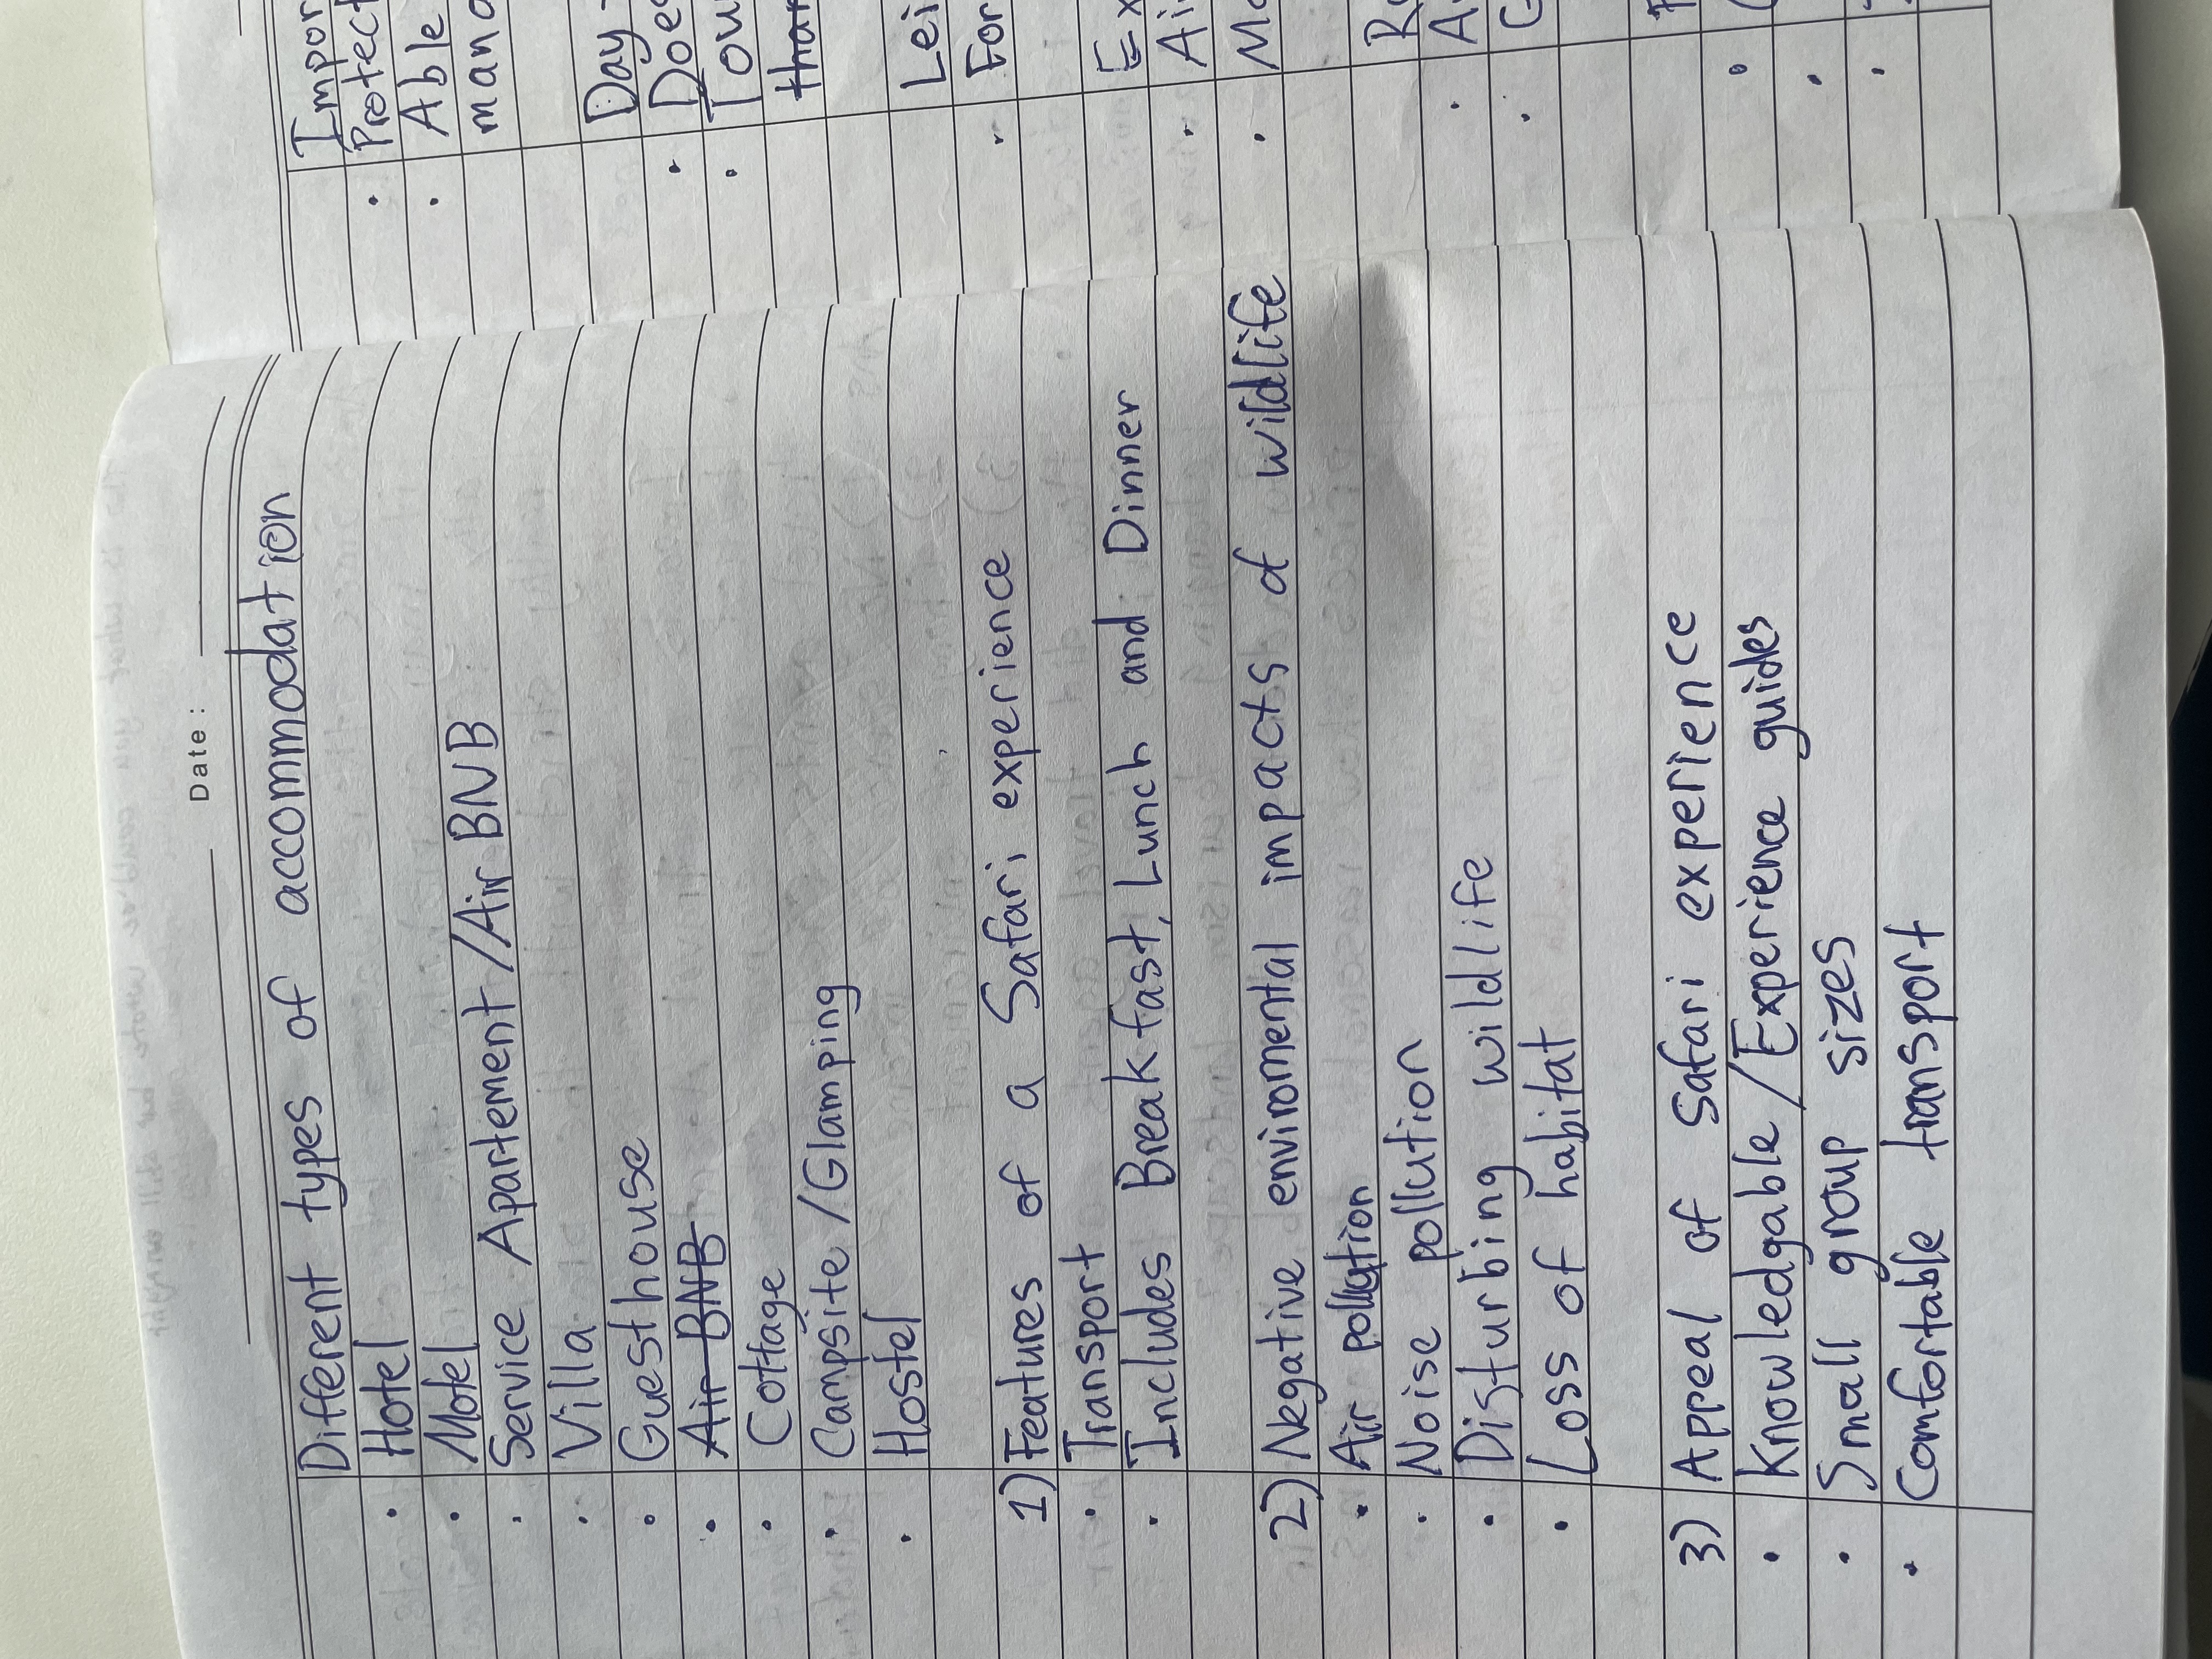 Date:
Different types of accommodation
• Hotel
• Motel
• Service Apartement /Air BNB
• Villa
• Guesthouse
• Air BNB
• Cottage
• Campsite /Glamping
• Hostel
1) Features of a Safari experience
• Transport
• Includes Breakfast, Lunch and Dinner
2) Negative enviromental impacts of wildlife
• Air pollution
• Noise pollution
• Disturbing wildlife
• Loss of habitat
3) Appeal of Safari experience
• Knowledgable /Experience guides
• Small group sizes
• Comfortable transport
Impor
• Protect
• Able
Day
• Does
than
Lei
• For
Ex
• Air